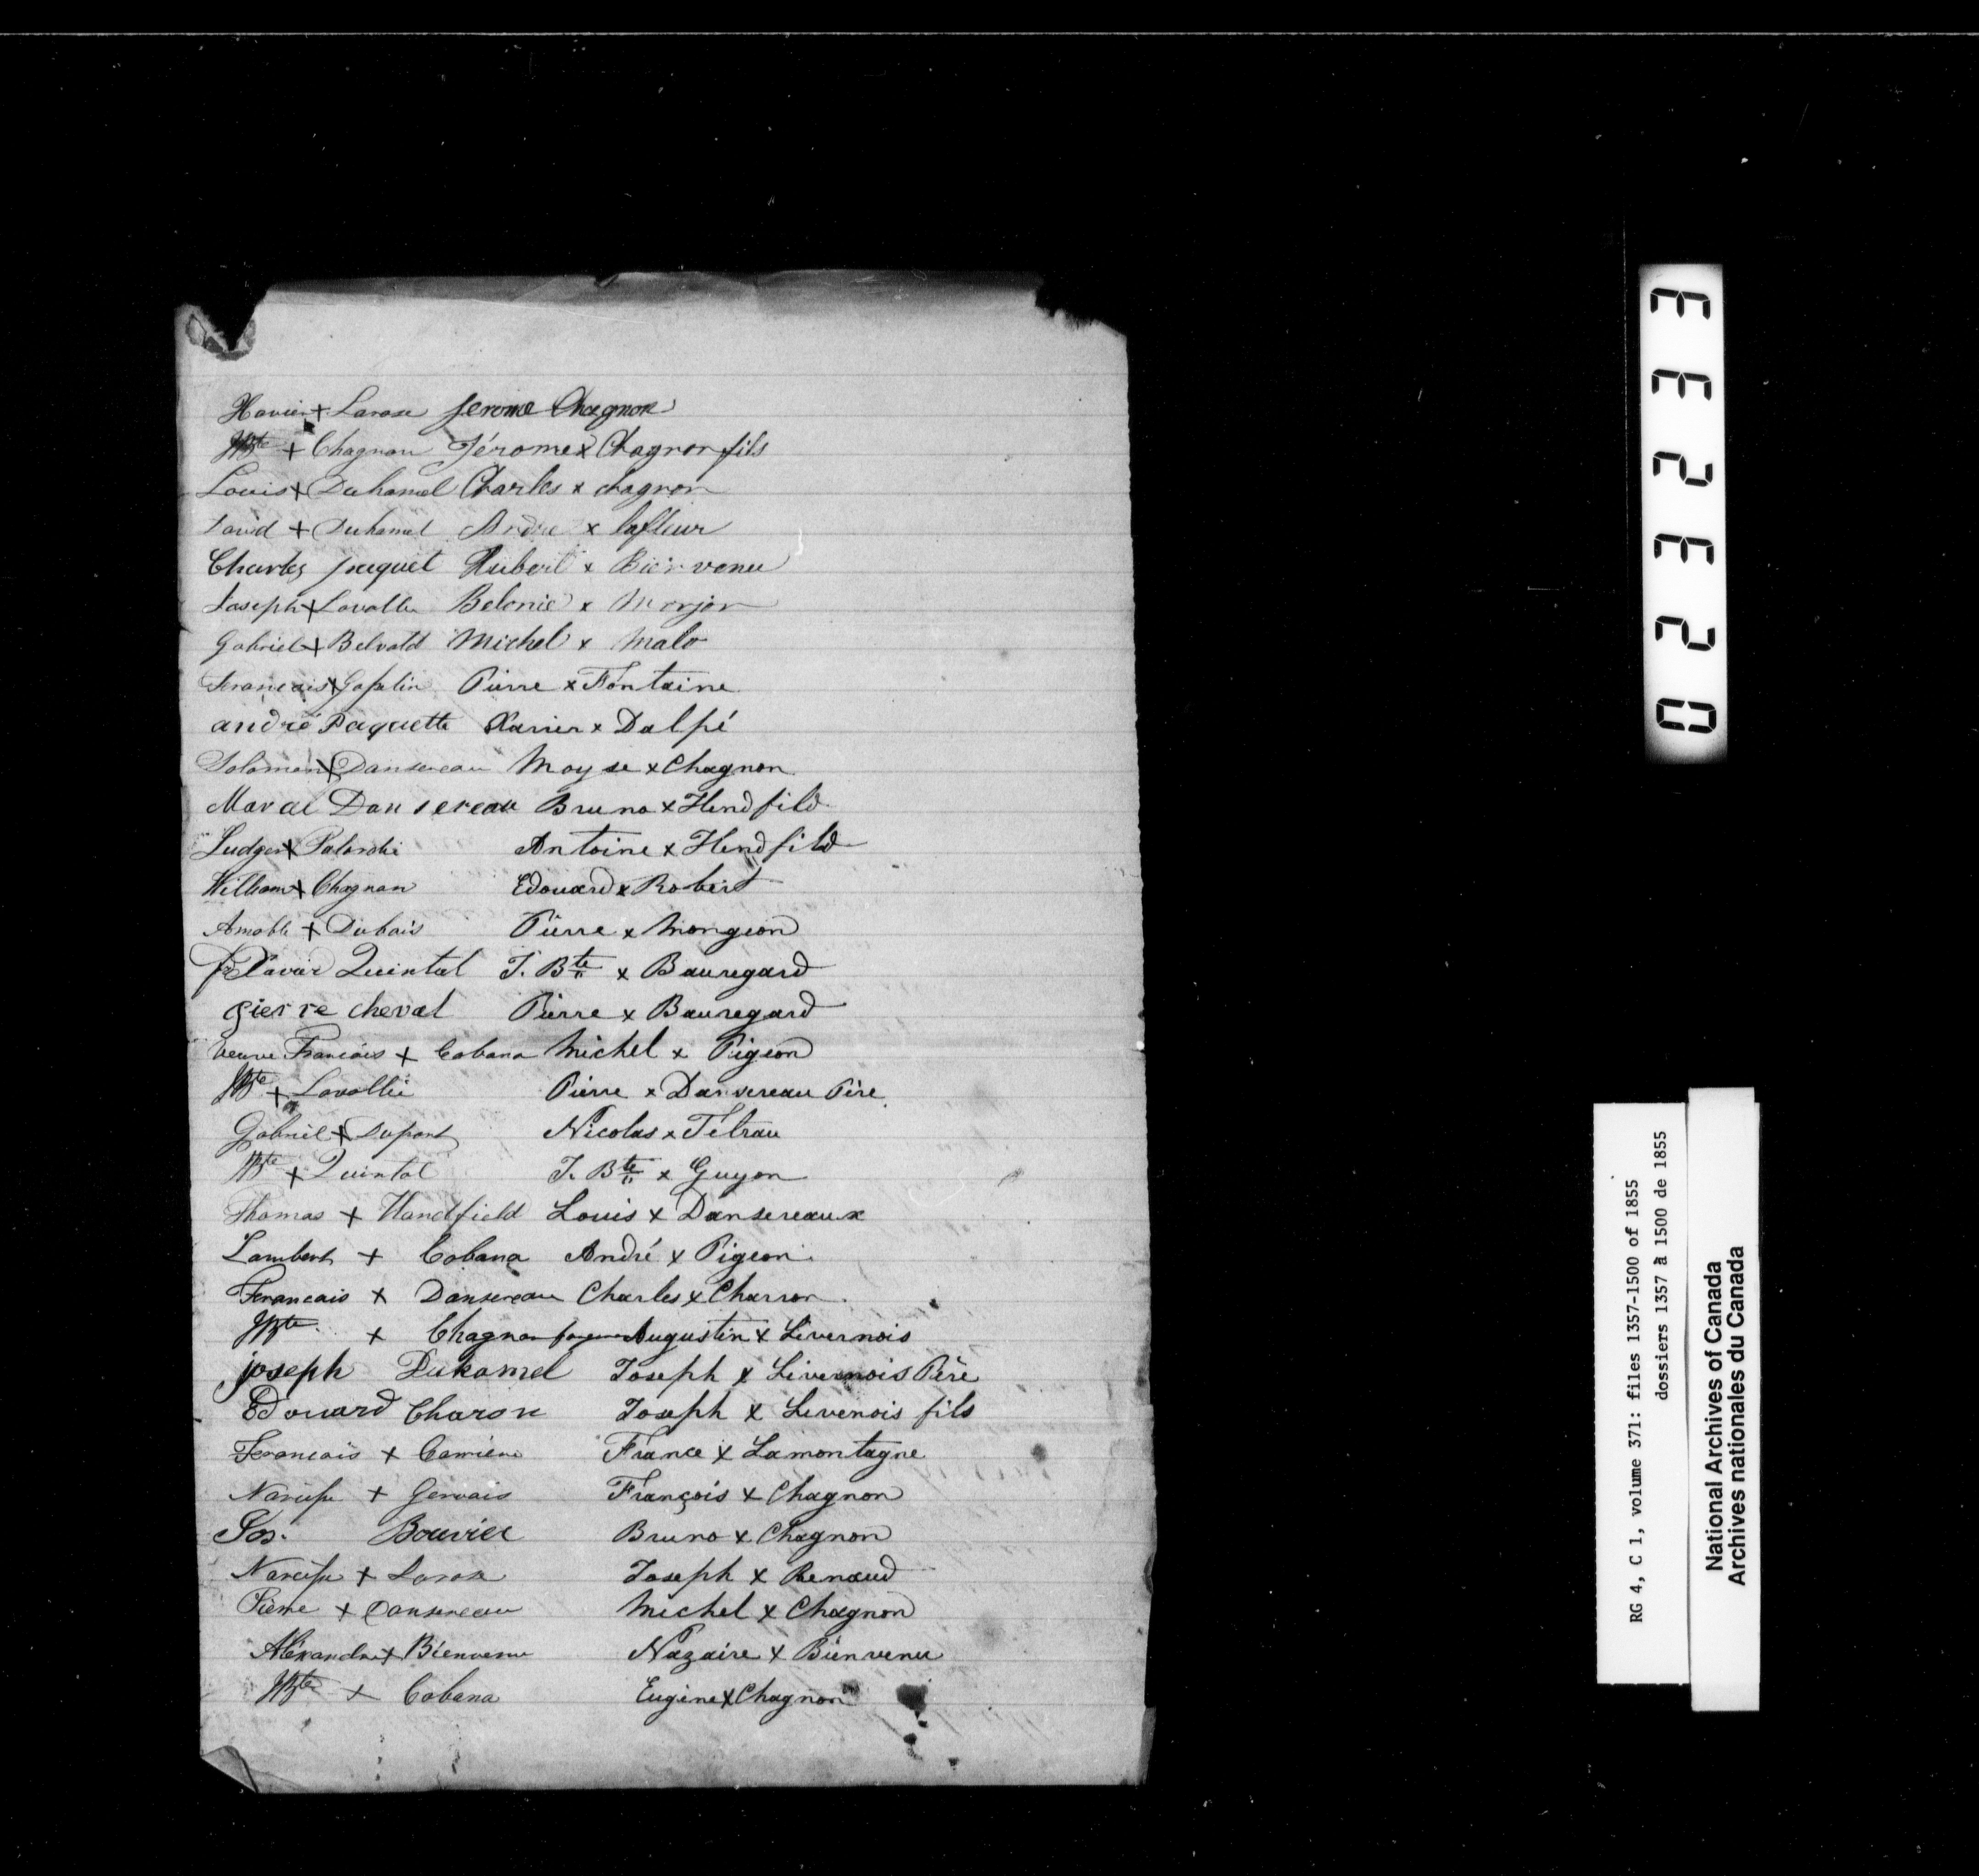 Xavier + Larose Jerome Chagnon
JBte + Chagnon Jérome x Chagnon fils
Louis + Duhamel Charles x chagnon
David + Duhamel André x lafleur
Charles paquet Hubert x Bienvenu
Joseph + Lavallee Belonie x
Gabriel + Belvald Michel x Malo
Francais + Goslin Pierre x Fontaine
andré Paquette Xavier x Dalpé
Solomon + Dansereau Moyse x Chagnon
Marcel Dansereau Bruno x Hendfild
Ludger + Palardi Antoine x Hendfild
William + Chagnon Edouard x Robert
Amable + Dubois Pierre x Mongeon
Xavier Quintal J. Bte x Bauregard
pierre cheval Pierre x Bauregard
Veuve Francois + Cabana Michel x Pigeon
JBte + Lavallée Pierre x Dansereau Père
Gabriel + Dupont Nicolas x Tétrau
JBte + Quintal J. Bte x Guyon
Thomas + Handfield Louis x Dansereaux
Lambert + Cabana André x Pigeon
Francais + Dansereau Charles x Charron
JBte + Chagnon Augustin x Livernois
joseph Duhamel Joseph x Livernois Père
Edouard Charon Joseph x Livenois fils
Francais + Carrière France x Lamontagne
Narcisse + Gervais François x Chagnon
Jos. Bouvier Bruno x Chagnon
Narcisse + Larose Joseph x Renaud
Pierre + Dansereau Michel x Chagnon
Aléxandre + Bienvenu Nazaire x Bienvenu
JBte + Cabana Eugène x Chagnon
023233
RG 4, C 1, volume 371: files 1357-1500 of 1855
dossiers 1357 à 1500 de 1855
National Archives of Canada
Archives nationales du Canada